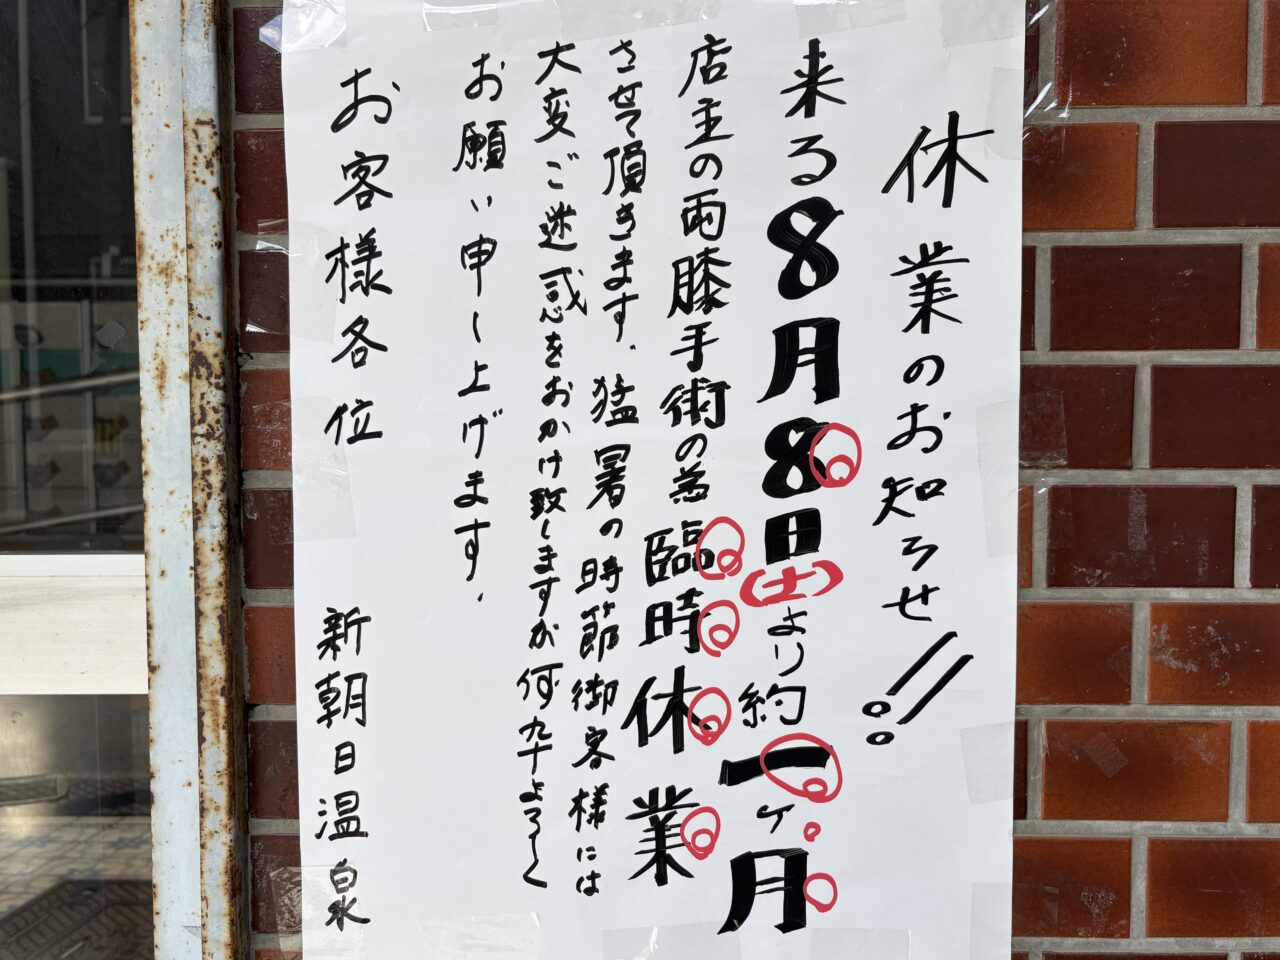 休業のお知らせ!!
来る8月8日(土)より約一ヶ月
店主の両膝手術の為臨時休業
させて頂きます.猛暑の時節御客様には
大変ご迷惑をおかけ致しますが何卆よろしく
お願い申し上げます.
お客様各位 新朝日温泉